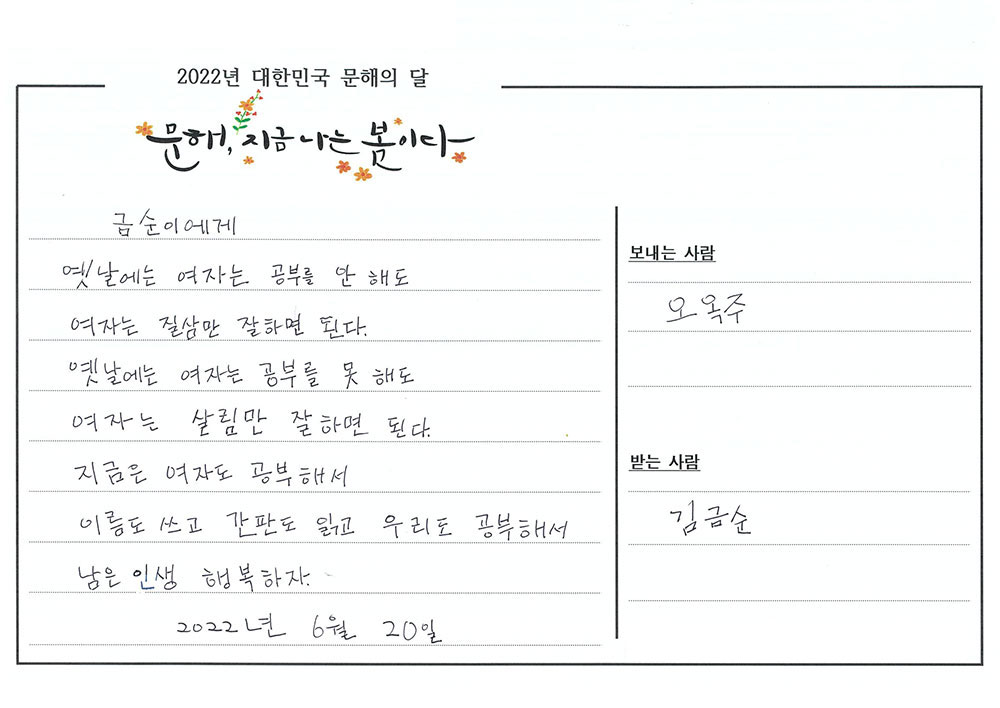 2022년 대한민국 문해의 달
문해, 지금 나는 봄이다
금순이에게
옛날에는 여자는 공부를 안 해도
여자는 질삼만 잘하면 된다.
옛날에는 여자는 공부를 못 해도
여자는 살림만 잘하면 된다.
지금은 여자도 공부해서
이름도 쓰고 간판도 읽고 우리도 공부해서
남은 인생 행복하자.
2022년 6월 20일
보내는 사람
오옥주
받는 사람
김금순